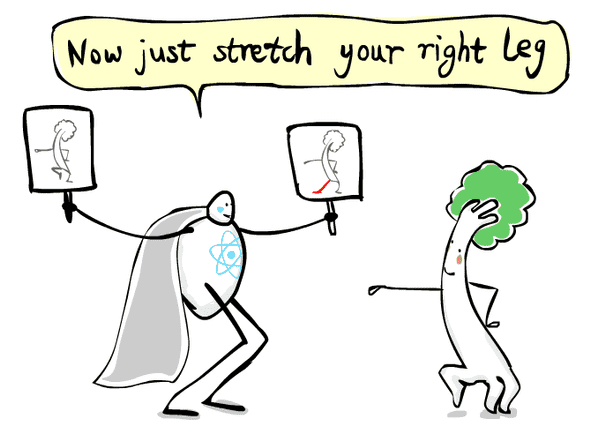 Now just stretch your right leg